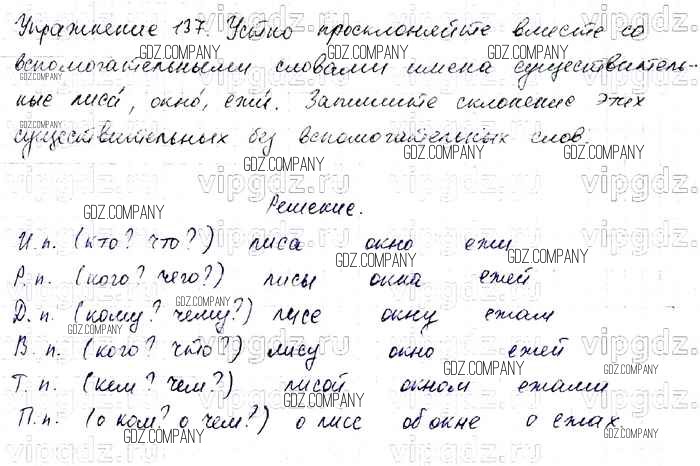 Упражнение 137. Устно просклоняйте вместе со
вспомогательными словами имена существитель-
ные лиса́, окно́, ежи́. Запишите склонение этих
существительных без вспомогательных слов.
Решение.
И.п. (кто? что?) лиса окно ежи
Р.п. (кого? чего?) лисы окна ежей
Д.п. (кому? чему?) лисе окну ежам
В.п. (кого? что?) лису окно ежей
Т.п. (кем? чем?) лисой окном ежами
П.п. (о ком? о чем?) о лисе об окне о ежах.